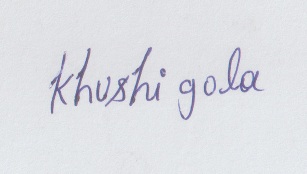 Khushi gola